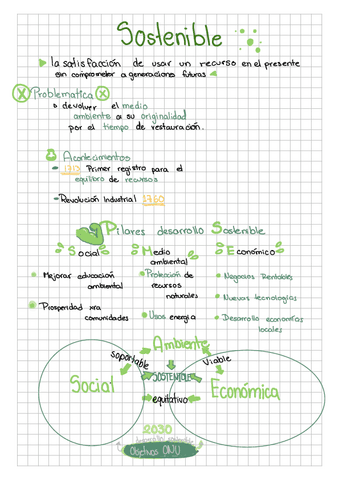 Sostenible
la satisfacción de usar un recurso en el presente
sin comprometer a generaciones futuras
Problematica
devolver el medio
ambiente a su originalidad
por el tiempo de restauración.
Acontecimientos
1713 Primer registro para el
equilibro de recursos
Revolución Industrial 1760
Pilares desarrollo Sostenible
Social
Medio ambiental
Económico
Mejorar educación ambiental
Protección de recursos naturales
Negocios Rentables
Nuevas tecnologías
Prosperidad xra comunidades
Usos energia
Desarrollo economías locales
Ambiente
soportable
Viable
SOSTENIBLE
Social
Económica
equitativo
2030
Objetivos ONU